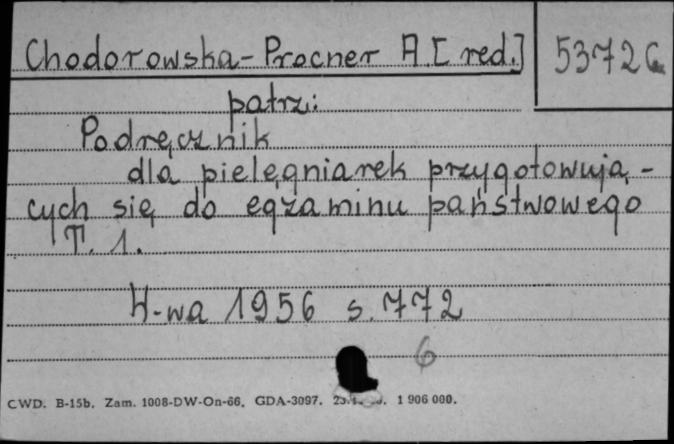 Chodorowska-Procner A. [red.]
5372 C
patrz:
Podręcznik
dla pielęgniarek przygotowują-
cych się do egzaminu państwowego
T. 1.
W-wa 1956 s. 772
6
CWD. B-15b. Zam. 1008-DW-On-66. GDA-3097. 1 906 000.